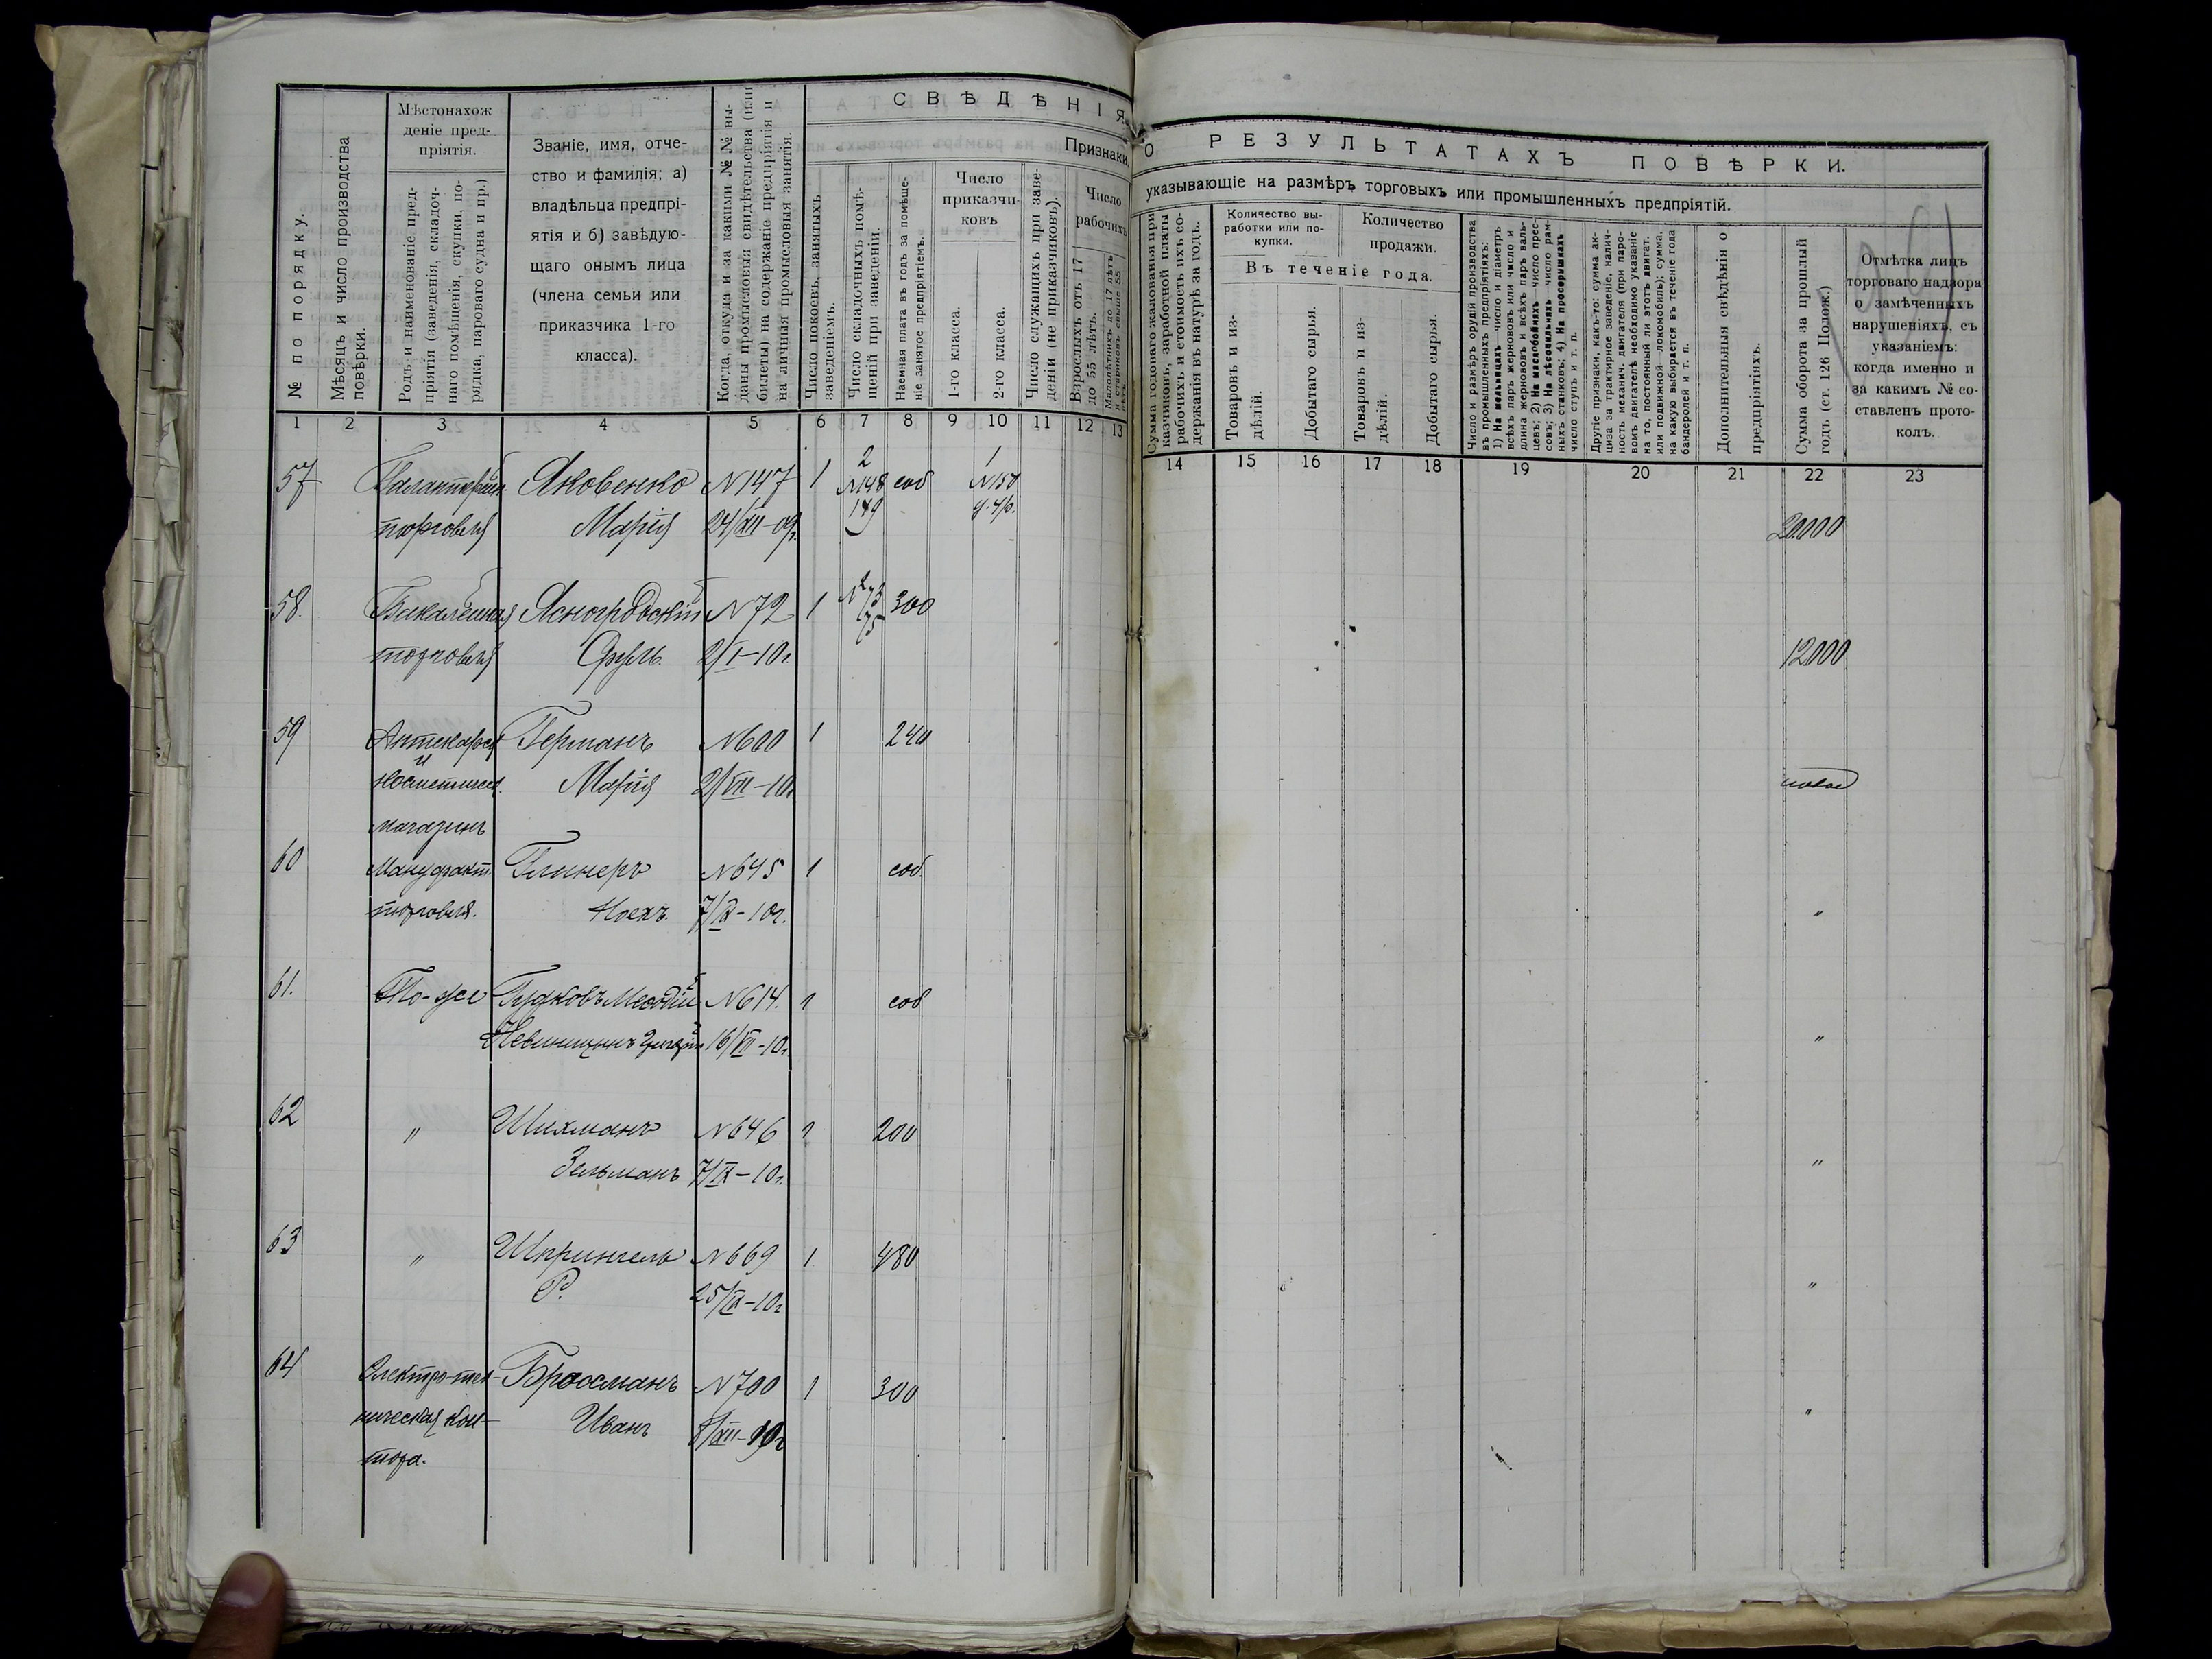 СВѢДѢНІЯ О РЕЗУЛЬТАТАХЪ ПОВѢРКИ.
Признаки, указывающіе на размѣръ торговыхъ или промышленныхъ предпріятій.
№ по порядку.
Мѣсяцъ и число производства
повѣрки.
Мѣстонахож
деніе пред-
пріятія.
Родъ и наименованіе пред-
пріятія (заведенія, складоч-
наго помѣщенія, скупки, по-
рядка, парового судна и пр.)
Званіе, имя, отче-
ство и фамилія; а)
владѣльца предпрі-
ятія и б) завѣдую-
щаго онымъ лица
(члена семьи или
приказчика 1-го
класса).
Когда, откуда и за какими №№ вы-
даны промысловыя свидѣтельства (или
билеты) на содержаніе предпріятія и
на личныя промысловыя занятія.
Число покоевъ, занятыхъ
заведеніемъ.
Число складочныхъ помѣ-
щеній при заведеніи.
Наемная плата въ годъ за помѣще-
ніе занятое предпріятіемъ.
Число
приказчи-
ковъ
1-го класса.
2-го класса.
Число служащихъ при заве-
деніи (не приказчиковъ).
Число
рабочихъ
Взрослыхъ отъ 17
до 55 лѣтъ.
Малолѣтнихъ до 17 лѣтъ
и стариковъ свыше 55
лѣтъ.
Сумма годового жалованья при-
казчиковъ, заработной платы
рабочихъ и стоимость ихъ со-
держанія въ натурѣ за годъ.
Количество вы-
работки или по-
купки.
Количество
продажи.
Въ теченіе года.
Товаровъ и из-
дѣлій.
Добытаго сырья.
Товаровъ и из-
дѣлій.
Добытаго сырья.
Число и размѣръ орудій производства
въ промышленныхъ предпріятіяхъ:
1) На мельницахъ число и діаметръ
всѣхъ паръ жернововъ или число и
длина жернововъ и всѣхъ паръ валь-
цевъ; 2) На маслобойняхъ число прес-
совъ; 3) На лѣсопильняхъ число рам-
ныхъ станковъ; 4) На просорушкахъ
число ступъ и т. п.
Другіе признаки, какъ-то: сумма ак-
циза за трактирное заведеніе, налич-
ность механич. двигателя (при паро-
вомъ двигателѣ необходимо указаніе
на то, постоянный ли этотъ двигат.
или подвижной—локомобиль); сумма,
на какую выбирается въ теченіе года
бандеролей и т. п.
Дополнительныя свѣдѣнія о
предпріятіяхъ.
Сумма оборота за прошлый
годъ (ст. 126 Полож.)
Отмѣтка лицъ
торговаго надзора
о замѣченныхъ
нарушеніяхъ, съ
указаніемъ:
когда именно и
за какимъ № со-
ставленъ прото-
колъ.
1 2 3 4 5 6 7 8 9 10 11 12 13 14 15 16 17 18 19 20 21 22 23
57 Галантерейн. Яковенко №147 1 2 №148 соб 1 №150
торговля Марія 24/XII-09г. 149 20.000
58. Бакалейная Ясногродскій №72 1 2 №73 300
торговля Сруль 2/I-10г. 75 12.000
59 Аптекарск Германъ №600 1 240
и
косметическ. Марія 2/VII-10г. новое
магазинъ
60 Мануфакт. Глинеръ №645 1 соб.
торговля. Ноехъ 7/IX-10г. "
61. То-же Гудковъ Меѳодій №614. 1 соб
16/VII-10г. "
62 " Шихманъ №646 1 200
Зельманъ 7/IX-10г. "
63 " Шпрингель №669 1 480
Р. 25/IX-10г "
64 Электро-тех- Броссманъ №700 1 300
ническая кон- Иванъ 8/XII-10г "
тора.